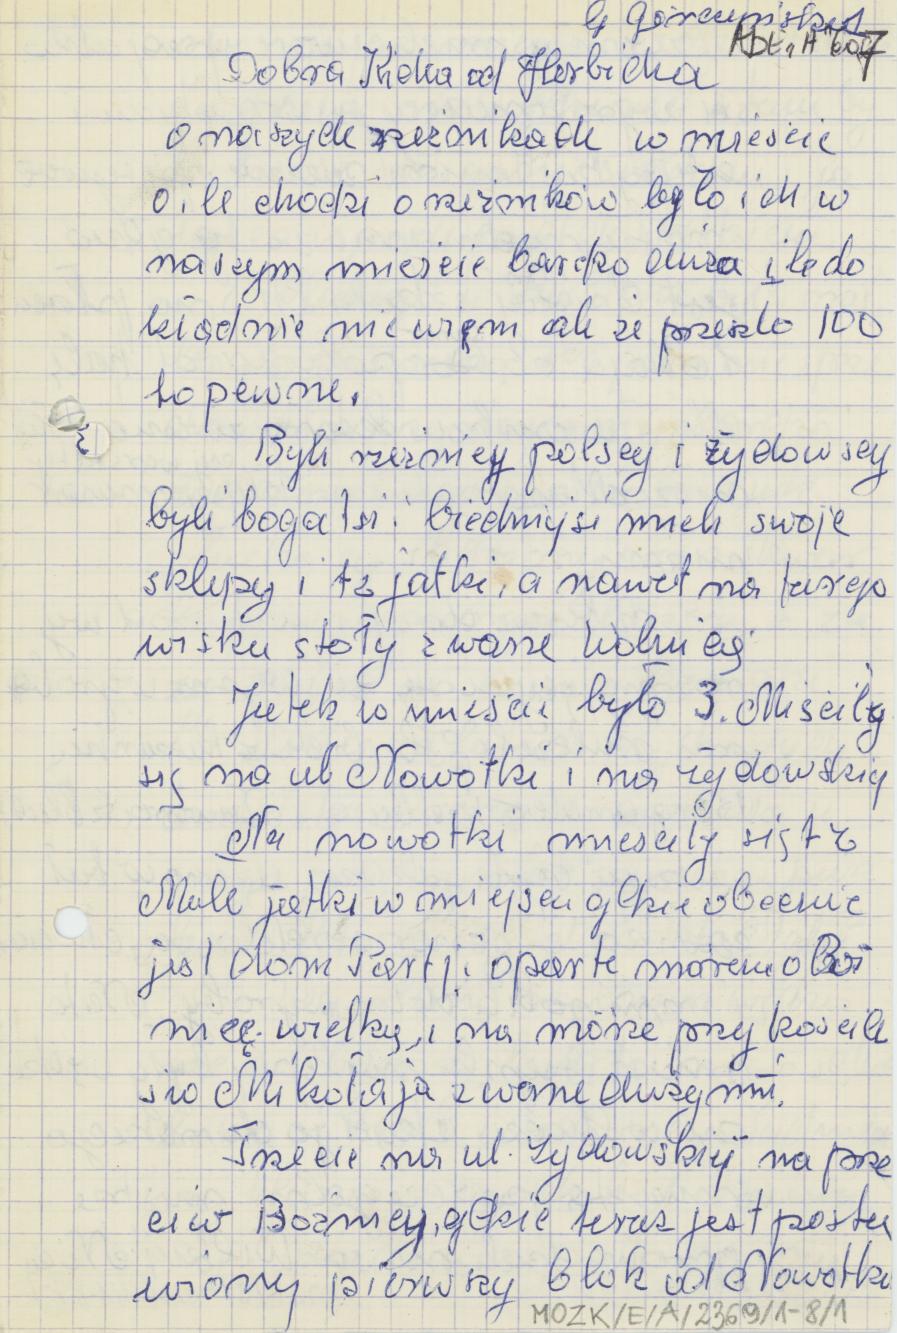 ADE "A" 607
Dobra Kicka od Herbicka
o naszych rzeźnikach w mieście
o ile chodzi o rzeźników było ich w
naszym mieście bardzo duża ile do
kładnie nie wiem ale że przeszło 100
to pewne.
Byli rzeźnicy polscy i żydowscy
byli bogatsi i biedniejsi mieli swoje
sklepy i tz jatki, a nawet na targo
wisku stoły zwane Wolnicą
Jatek w mieście było 3. Mieściły
się na ul Nowotki i na żydowskiej
Na nowotki mieściły się tz
Małe jatki w miejscu gdzie obecnie
jest dom Partji oparte murem o Boż
nicę wielką, i na murze przy kościele
św Mikołaja zwane dużymi.
Trzecie na ul. Żydowskiej na prze
ciw Bożnicy, gdzie teraz jest posta
wiony pierwszy blok od Nowotki
MOZK/E/A/2369/1-8/1